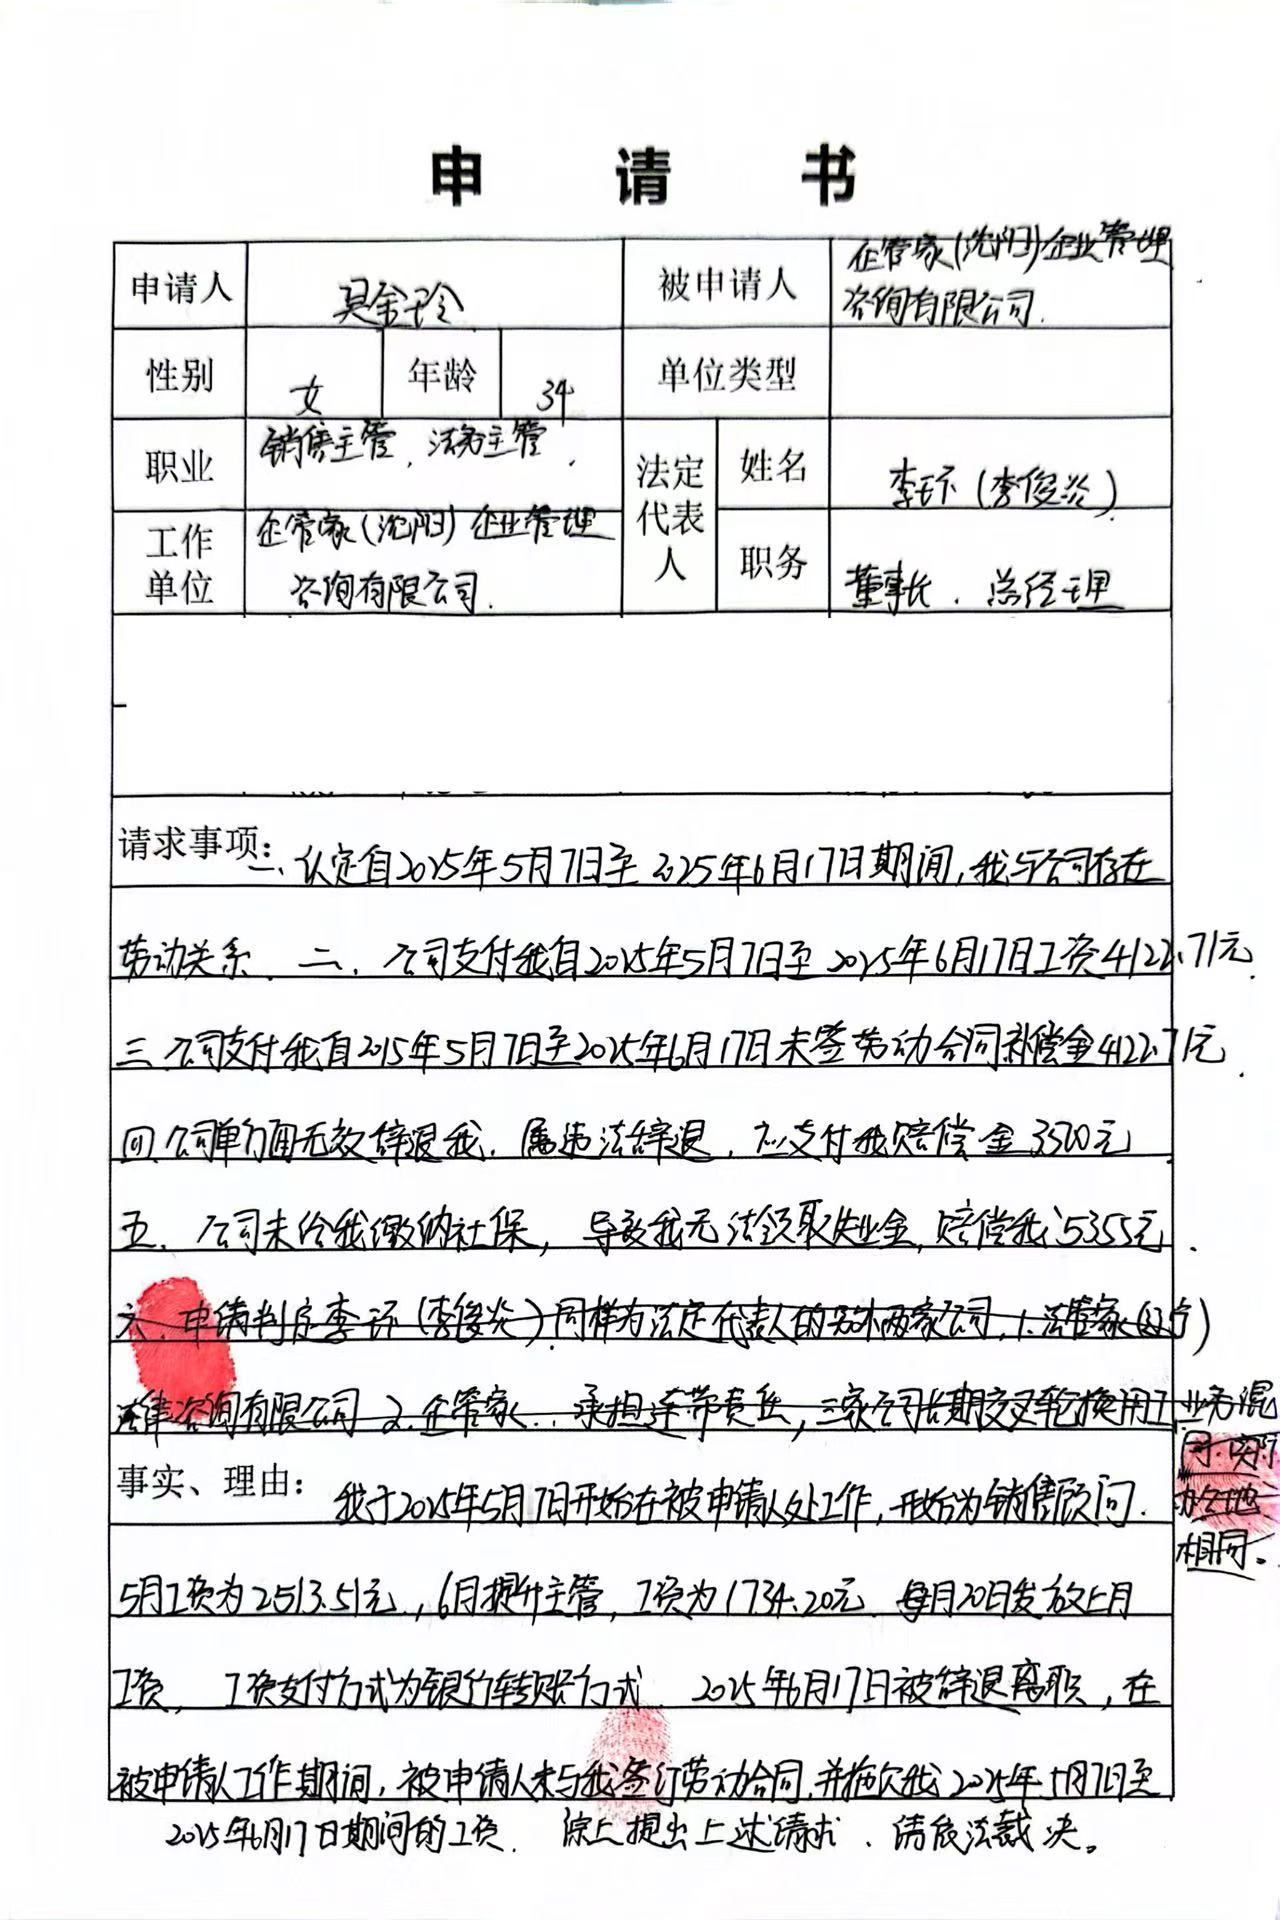 申请书
申请人 吴金玲 被申请人 企管家(沈阳)企业管理咨询有限公司.
性别 女 年龄 34 单位类型
职业 销售主管、法务主管. 法定代表人 姓名 李环(李俊炎)
工作单位 企管家(沈阳)企业管理咨询有限公司. 职务 董事长、总经理
请求事项:一、认定自2025年5月7日至2025年6月17日期间,我与公司存在
劳动关系. 二、公司支付我自2025年5月7日至2025年6月17日工资4122.71元.
三.公司支付我自2025年5月7日至2025年6月17日未签劳动合同补偿金4122.71元.
四.公司单方面无效辞退我.属违法辞退,应支付我赔偿金3500元
五.公司未给我缴纳社保,导致我无法领取失业金,赔偿我5355元.
六、申请判定李环(李俊炎)同样为法定代表人的另外两家公司,1.法管家()
法律咨询有限公司 2.企管家... 承担连带责任,三家公司长期交叉轮换用工.业务混
同.实际
办公地
相同。
事实、理由: 我于2025年5月7日开始在被申请人处工作,开始为销售顾问.
5月工资为2513.51元.,6月提升主管,工资为1734.20元.每月20日发放上月
工资, 工资支付方式为银行转账方式. 2025年6月17日被辞退离职,在
被申请人工作期间,被申请人未与我签订劳动合同.并拖欠我2025年5月7日至
2025年6月17日期间的工资. 综上提出上述请求、请依法裁决。